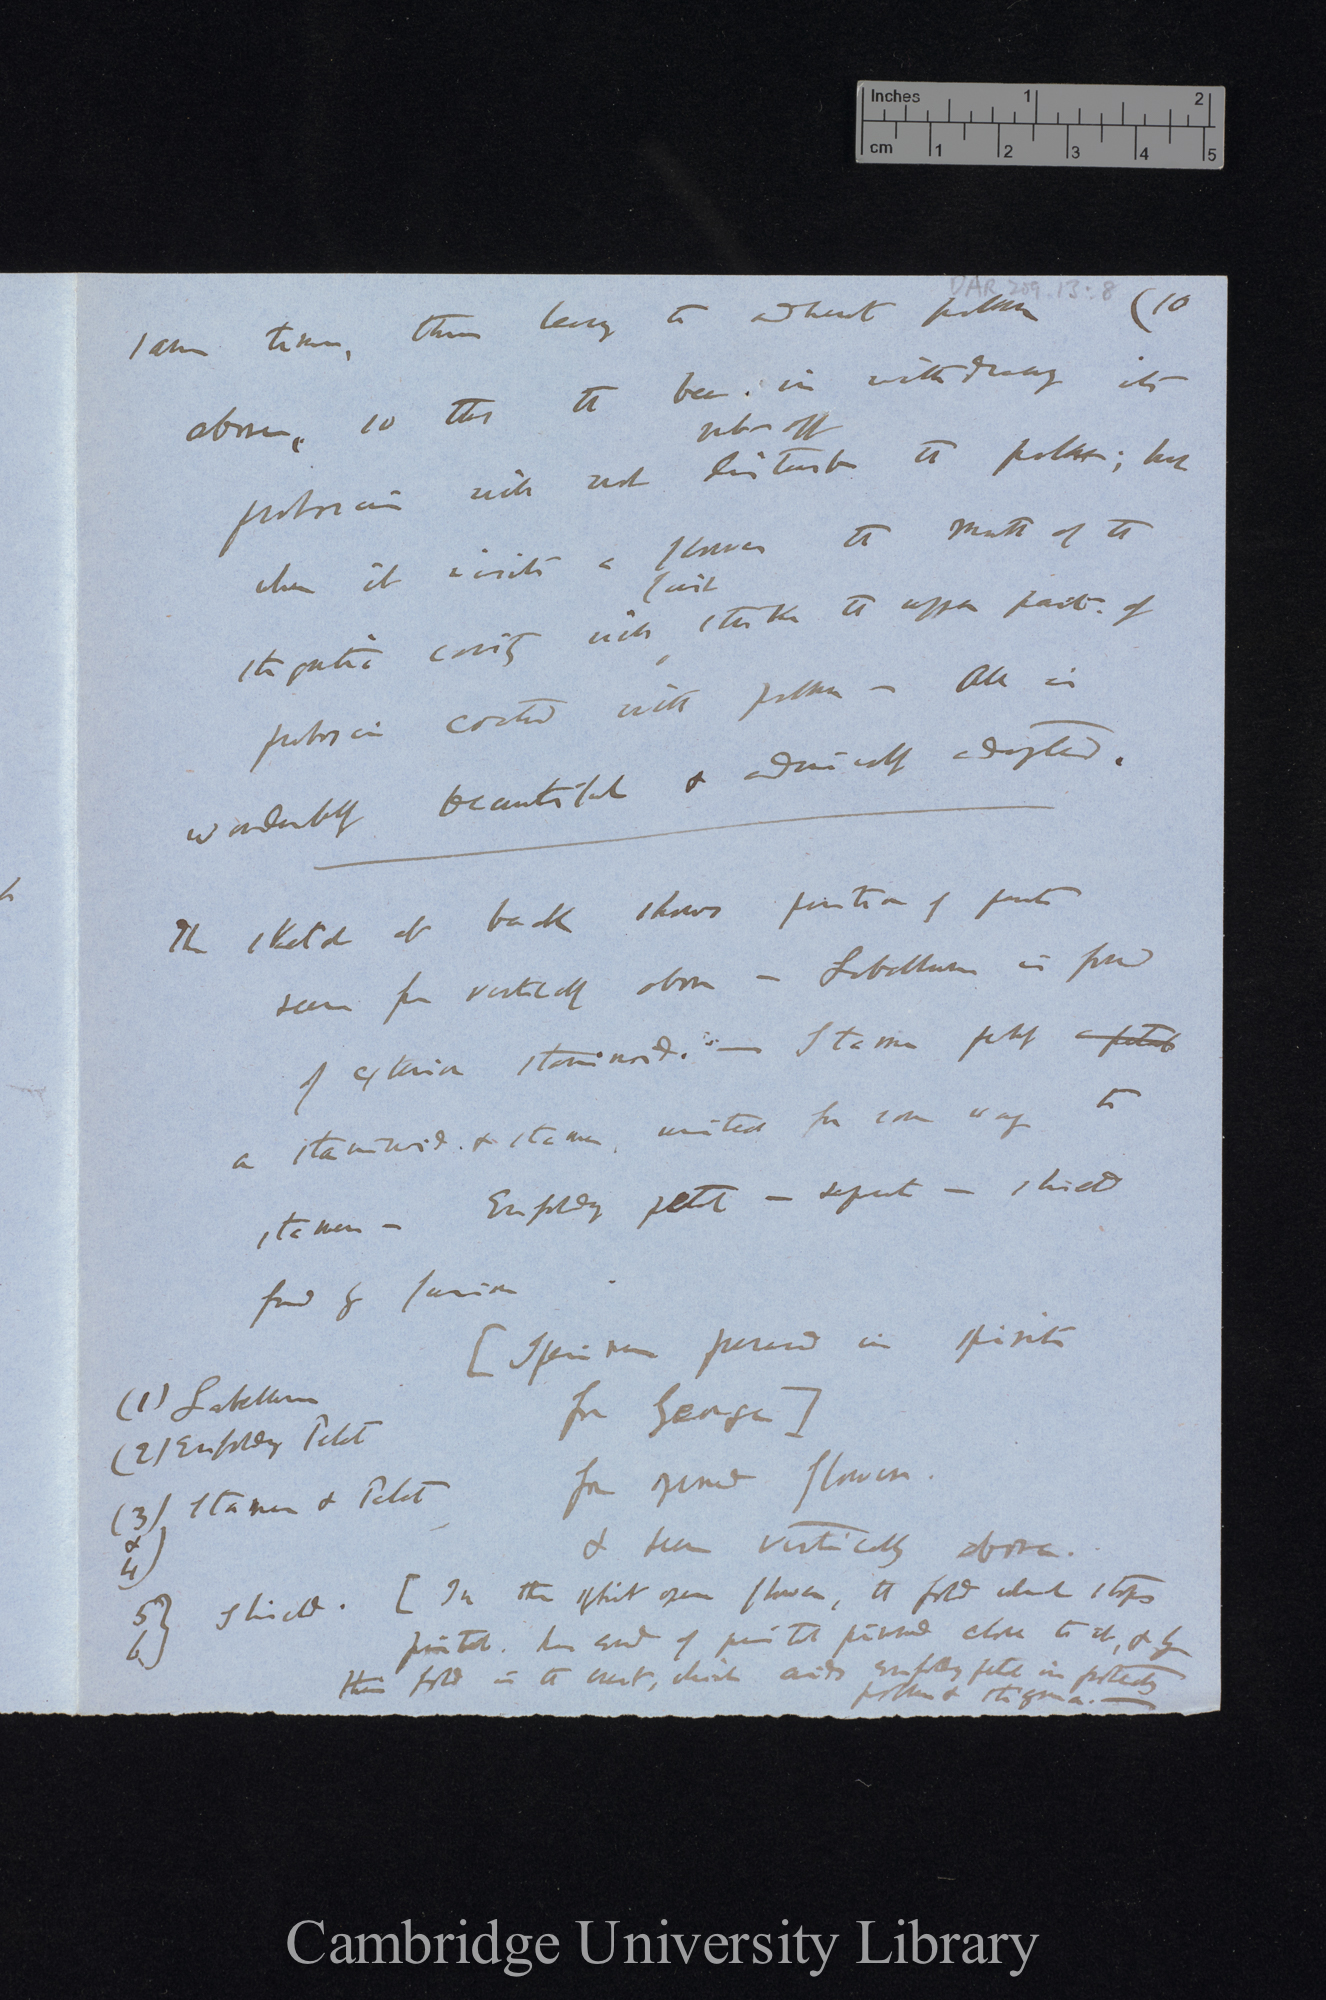 Inches 1 2
cm 1 2 3 4 5
DAR 209.13:8
same time, then being to adherent pollen (10
above, so that the bee in withdrawing its
rub off
proboscis will not disturb the pollen; but
when it visits a flower the mouth of the
first
stigmatic cavity will strike the upper part of
proboscis coated with pollen — All is
wonderfully beautiful & admirably adapted.
The sketch at back shows position of parts
seen from vertically above — Labellum is formed
of exterior staminod. — Stamen partly a petal
a staminod. & stamen, united for some way to
stamen — Enfolding petal — separate — shield
formed by fusion
[Specimen preserved in spirits
for George]
(1) Labellum
(2) Enfolding Petal
for opened flower.
(3) Stamen & Petal
&
4)
& seen vertically above.
5} Shield. [In the split open flower, the fold which stops
6}
pistil. has end of pistil pressed close to it, &
this fold is the crest, which aids enfolding petal in protecting
pollen & stigma. —
Cambridge University Library